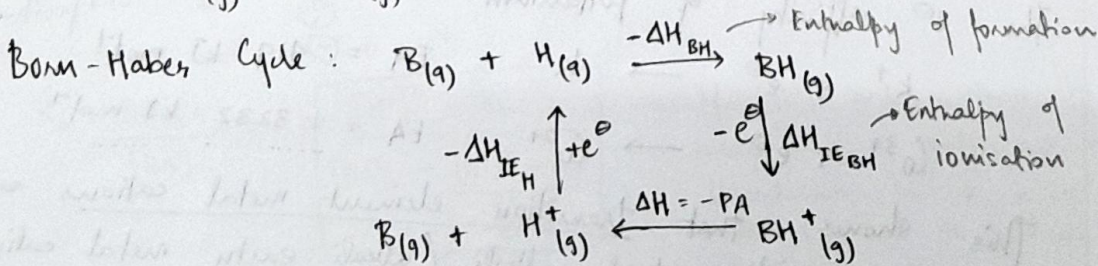 Born-Haber Cycle : B(g) + H(g) -ΔH BH → BH (g) → Enthalpy of formation
-ΔH IE H +e⊖ -e⊖ ΔH IE BH → Enthalpy of ionisation
B(g) + H⁺(g) ← ΔH = -PA BH⁺(g)